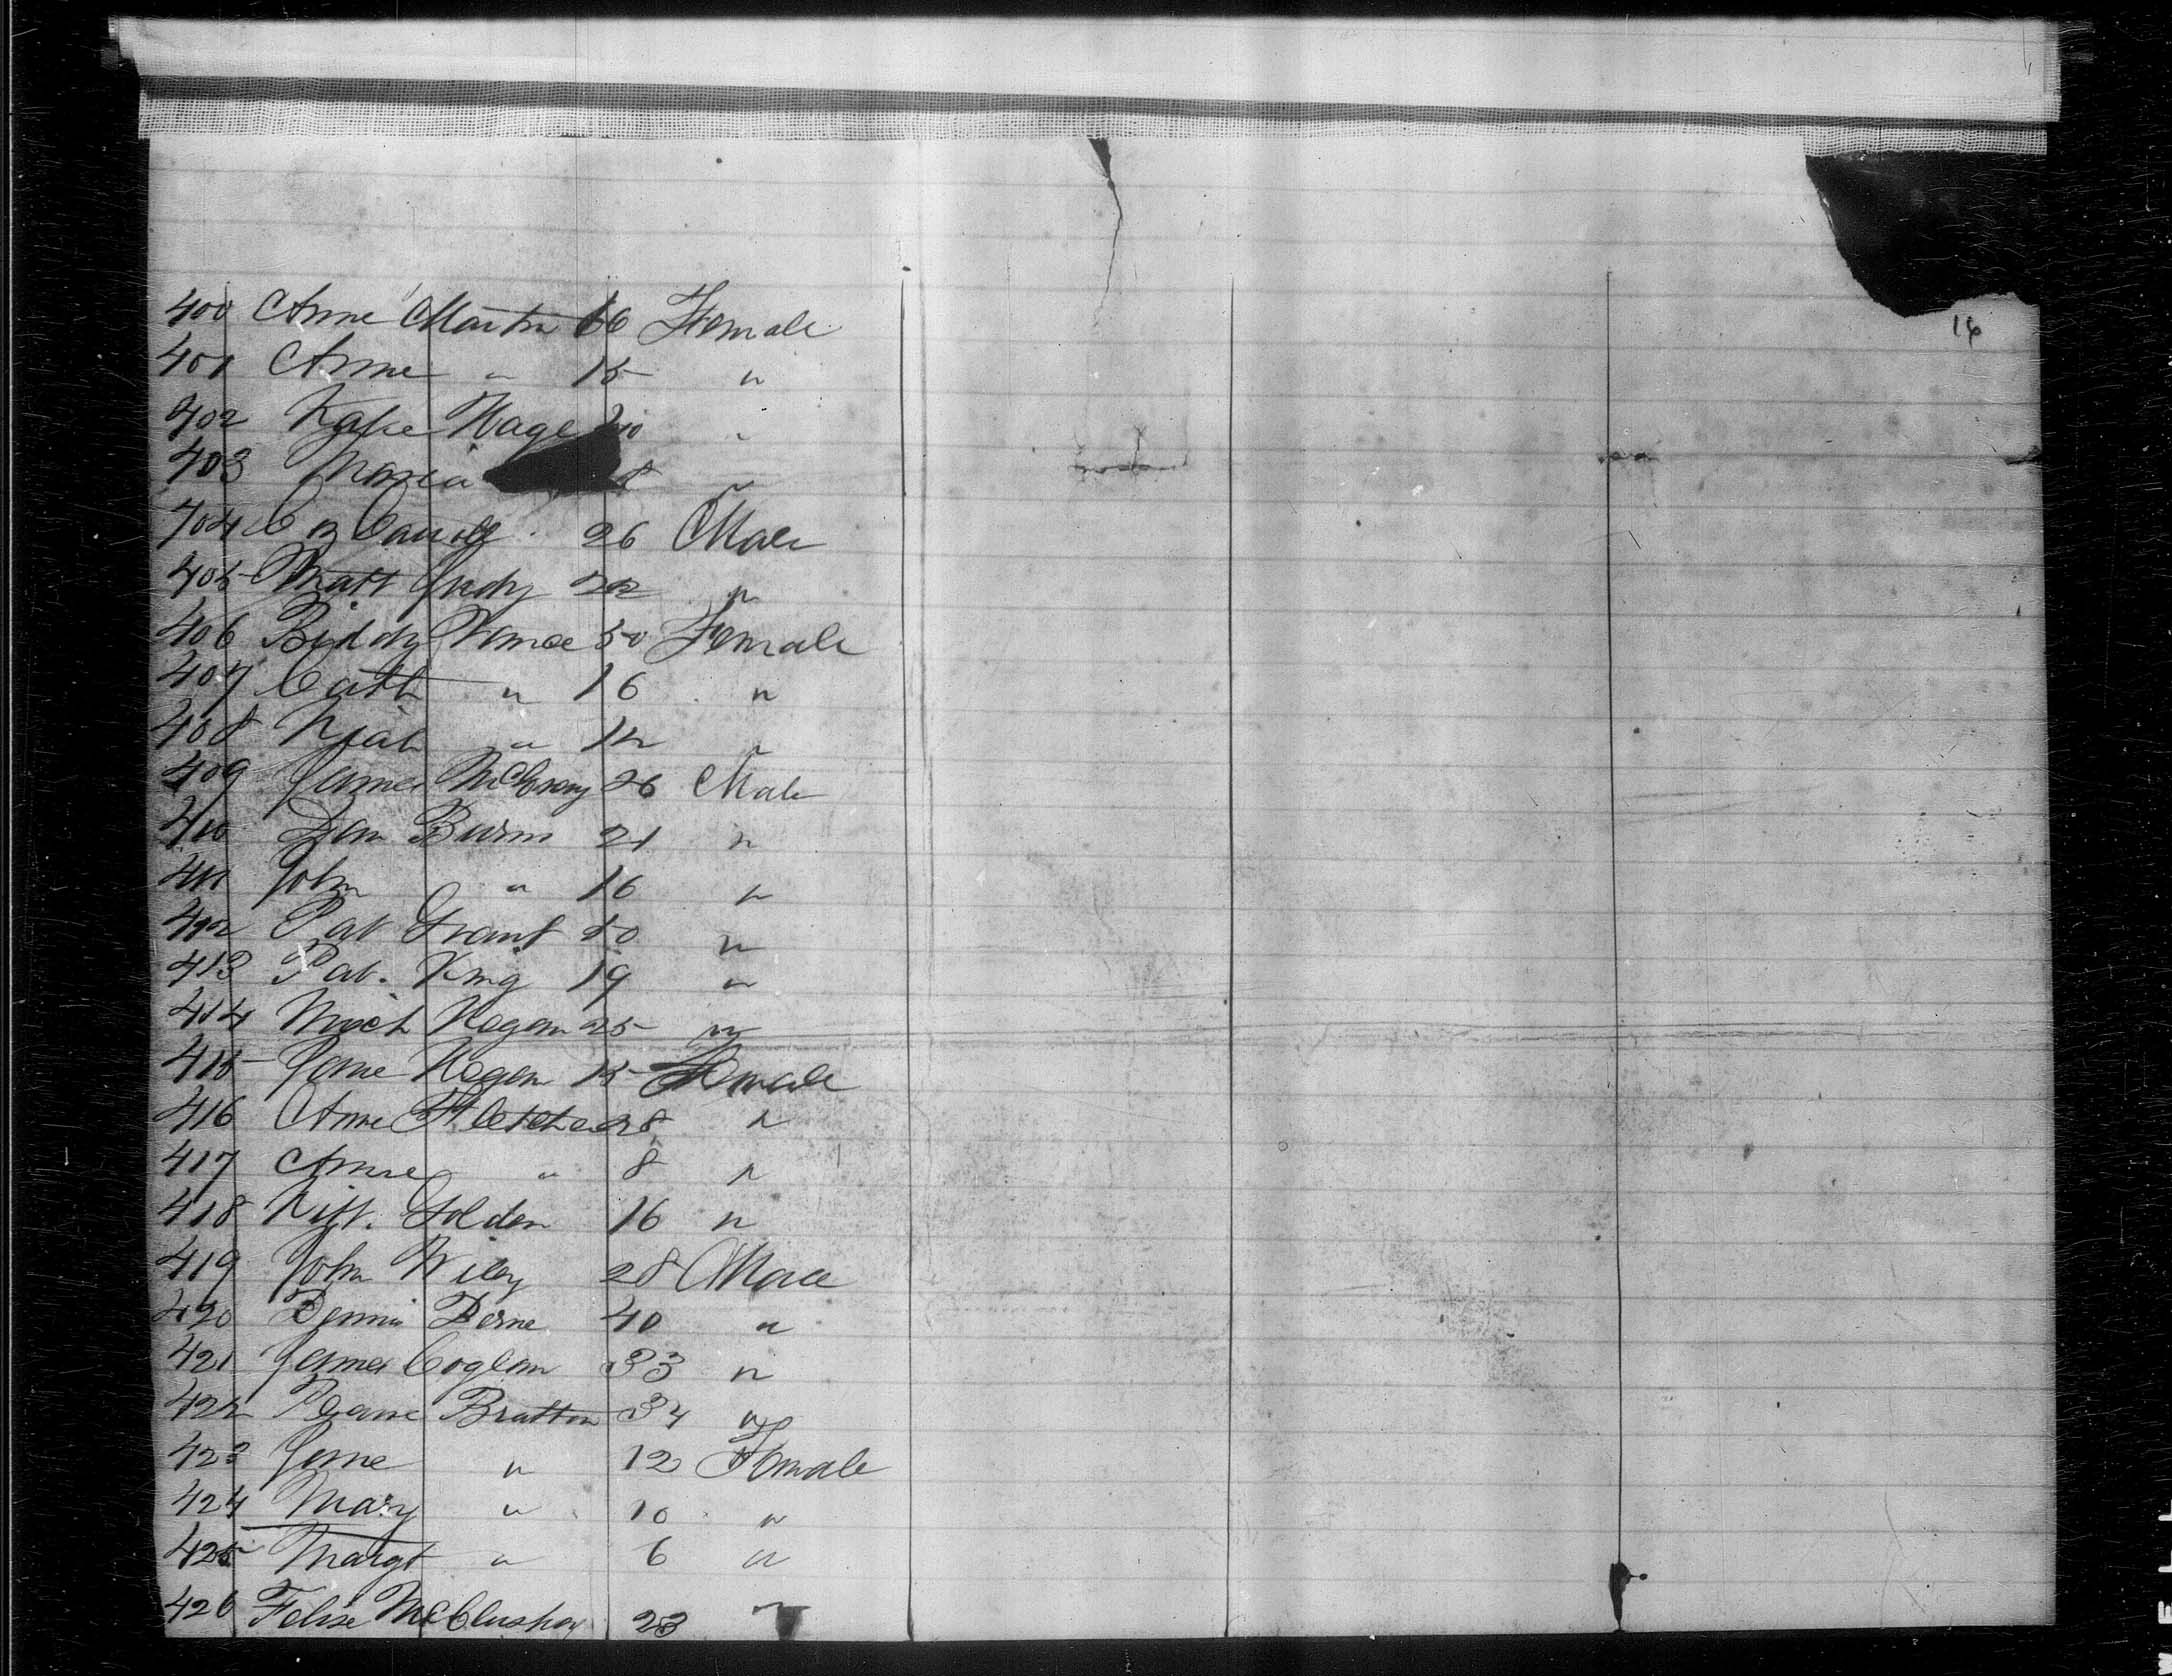 16
400 Anne Martin 16 Female
401 Anne " 15 "
402 Kate Hage 20 "
403 Maria 8 "
404 26 Male
405 Matt 22 "
406 Biddy Vance 50 Female
407 Cath " 16 "
408 " 12 "
409 James McCrory 26 Male
410 Dan Burns 21 "
411 John " 16 "
412 Pat Grant 50 "
413 Pat. King 19 "
414 Mich Hogan 25 "
415 Jane Hogan 15 Female
416 Anne Fletcher 28 "
417 Anne " 8 "
418 Kitt. Golden 16 "
419 John Wiley 28 Male
420 Dennis Derne 40 "
421 James Coglan 33 "
422 Bratton 34 "
423 Jane " 12 Female
424 Mary " 10 "
425 Margt " 6 "
426 Felix McCluskey 23 "